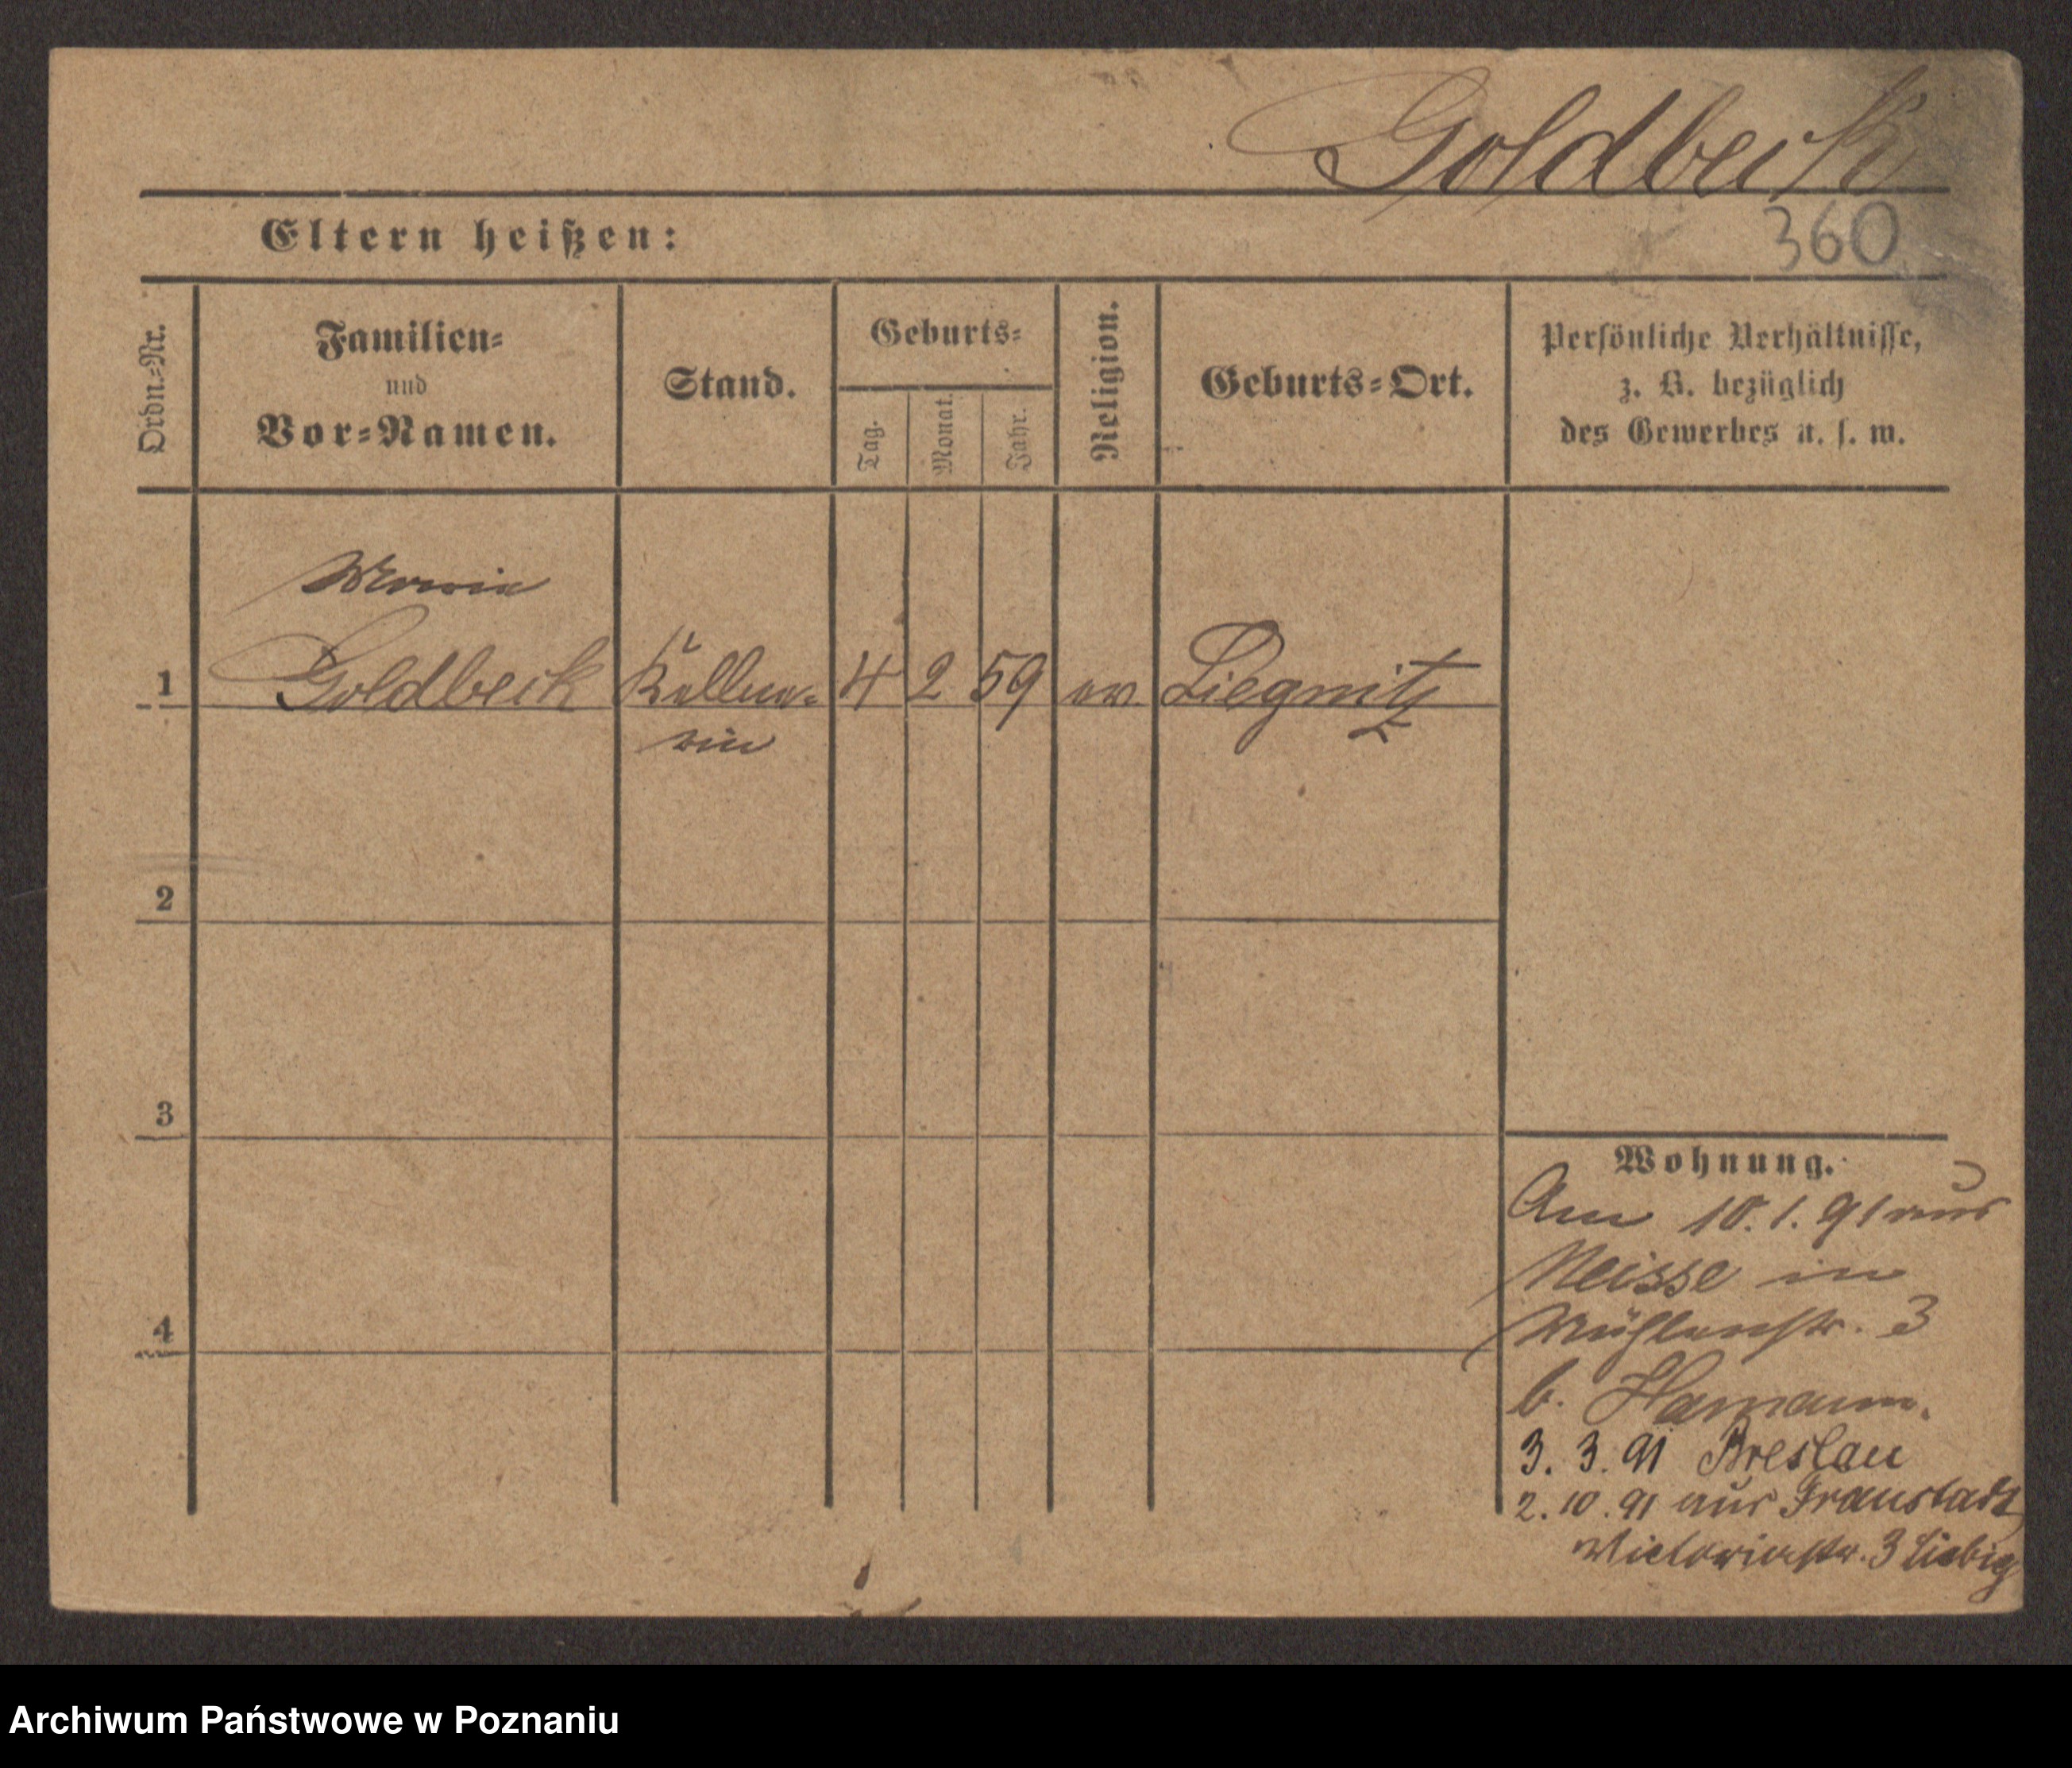 Goldbeck
360
Eltern heißen:
Ordn.-Nr.
Familien-
und
Vor-Namen.
Stand.
Geburts-
Tag.
Monat.
Jahr.
Religion.
Geburts-Ort.
Persönliche Verhältnisse,
z. B. bezüglich
des Gewerbes u. s. w.
1
Goldbeck Kellne-
rin
4 2 59 ev. Liegnitz
2
3
4
Wohnung.
Am 10. 1. 91 aus
Neisse in
Mühlenstr. 3
b. Hamann.
3. 3. 91 Breslau
2. 10. 91 aus Fraustadt
Victoriastr. 3 Liebig
Archiwum Państwowe w Poznaniu